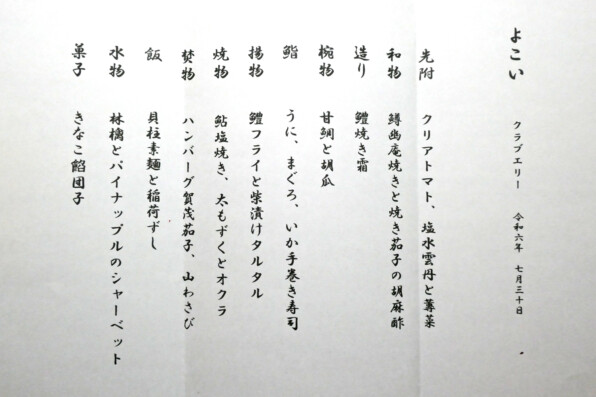 よこい
クラブエリー　令和六年　七月三十日
先附　クリアトマト、塩水雲丹と蓴菜
和物　鱒幽庵焼きと焼き茄子の胡麻酢
造り　鱧焼き霜
椀物　甘鯛と胡瓜
鮨　うに、まぐろ、いか手巻き寿司
揚物　鱧フライと柴漬けタルタル
焼物　鮎塩焼き、太もずくとオクラ
焚物　ハンバーグ賀茂茄子、山わさび
飯　貝柱素麺と稲荷ずし
水物　林檎とパイナップルのシャーベット
菓子　きなこ餡団子